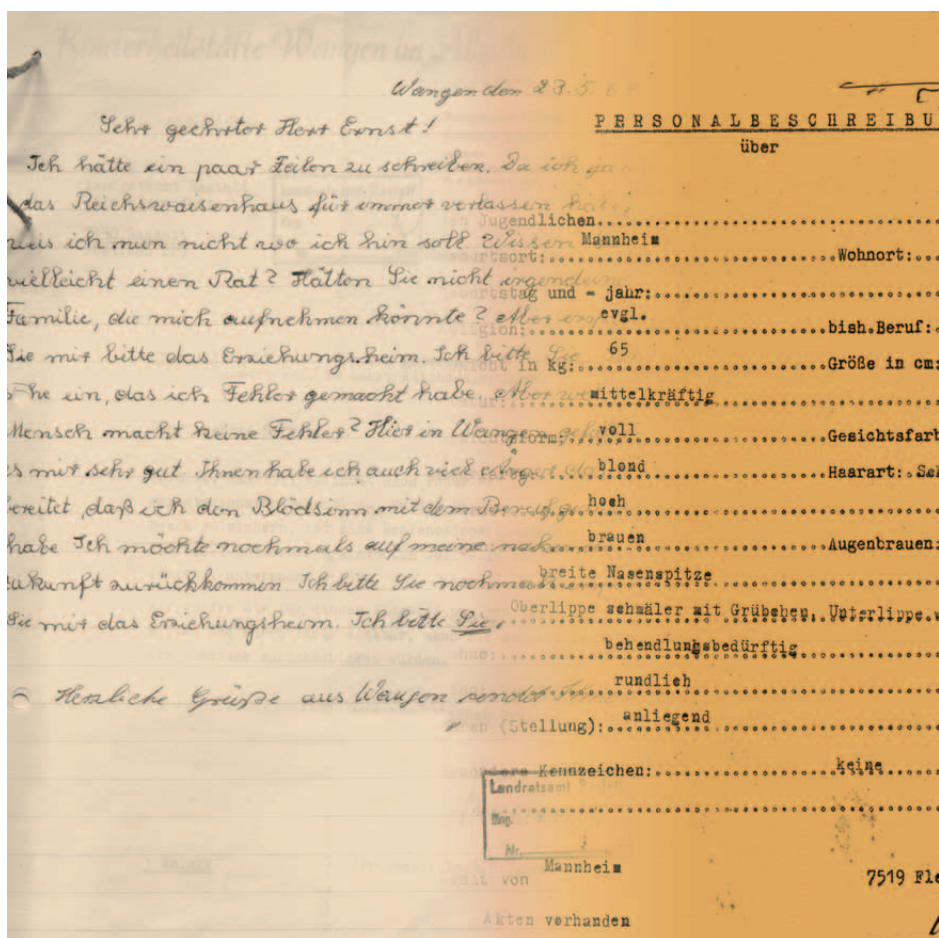 Kinderheilstätte Wangen im
Wangen den 23.5.
Sehr geehrter Herr Ernst!
Ich hätte ein paar Zeilen zu schreiben. Da ich
das Reichswaisenhaus für immer verlassen habe,
weis ich nun nicht wo ich hin soll Wissen
vielleicht einen Rat? Hätten Sie nicht irgendeine
Familie, die mich aufnehmen könnte? Aber
Sie mir bitte das Erziehungsheim. Ich bitte Sie
ein, das ich Fehler gemacht habe. Aber
Mensch macht keine Fehler? Hier in Wangen
es mir sehr gut Ihnen habe ich auch viel
bereitet, daß ich den Blödsinn mit dem Beruf
habe Ich möchte nochmals auf meine
zukunft zurückkommen Ich bitte Sie nochmals
Sie mir das Erziehungsheim. Ich bitte Sie.
Herzliche Grüße aus Wangen sendet Ihnen
PERSONALBESCHREIBU
über
Jugendlichen
Mannheim
Wohnort:
und - jahr:
evgl.
bish.Beruf:
65
in kg: Größe in cm:
mittelkräftig
form: voll Gesichtsfarb
blond Haarart:
hoch
brauen Augenbrauen:
breite Nasenspitze
Oberlippe schmäler mit Grübchen, Unterlippe
behendlungsbedürftig
rundlich
(Stellung): anliegend
Kennzeichen: keine
Landratsamt
Eing.
Nr.
Mannheim
von
7519 Fle
Akten vorhanden